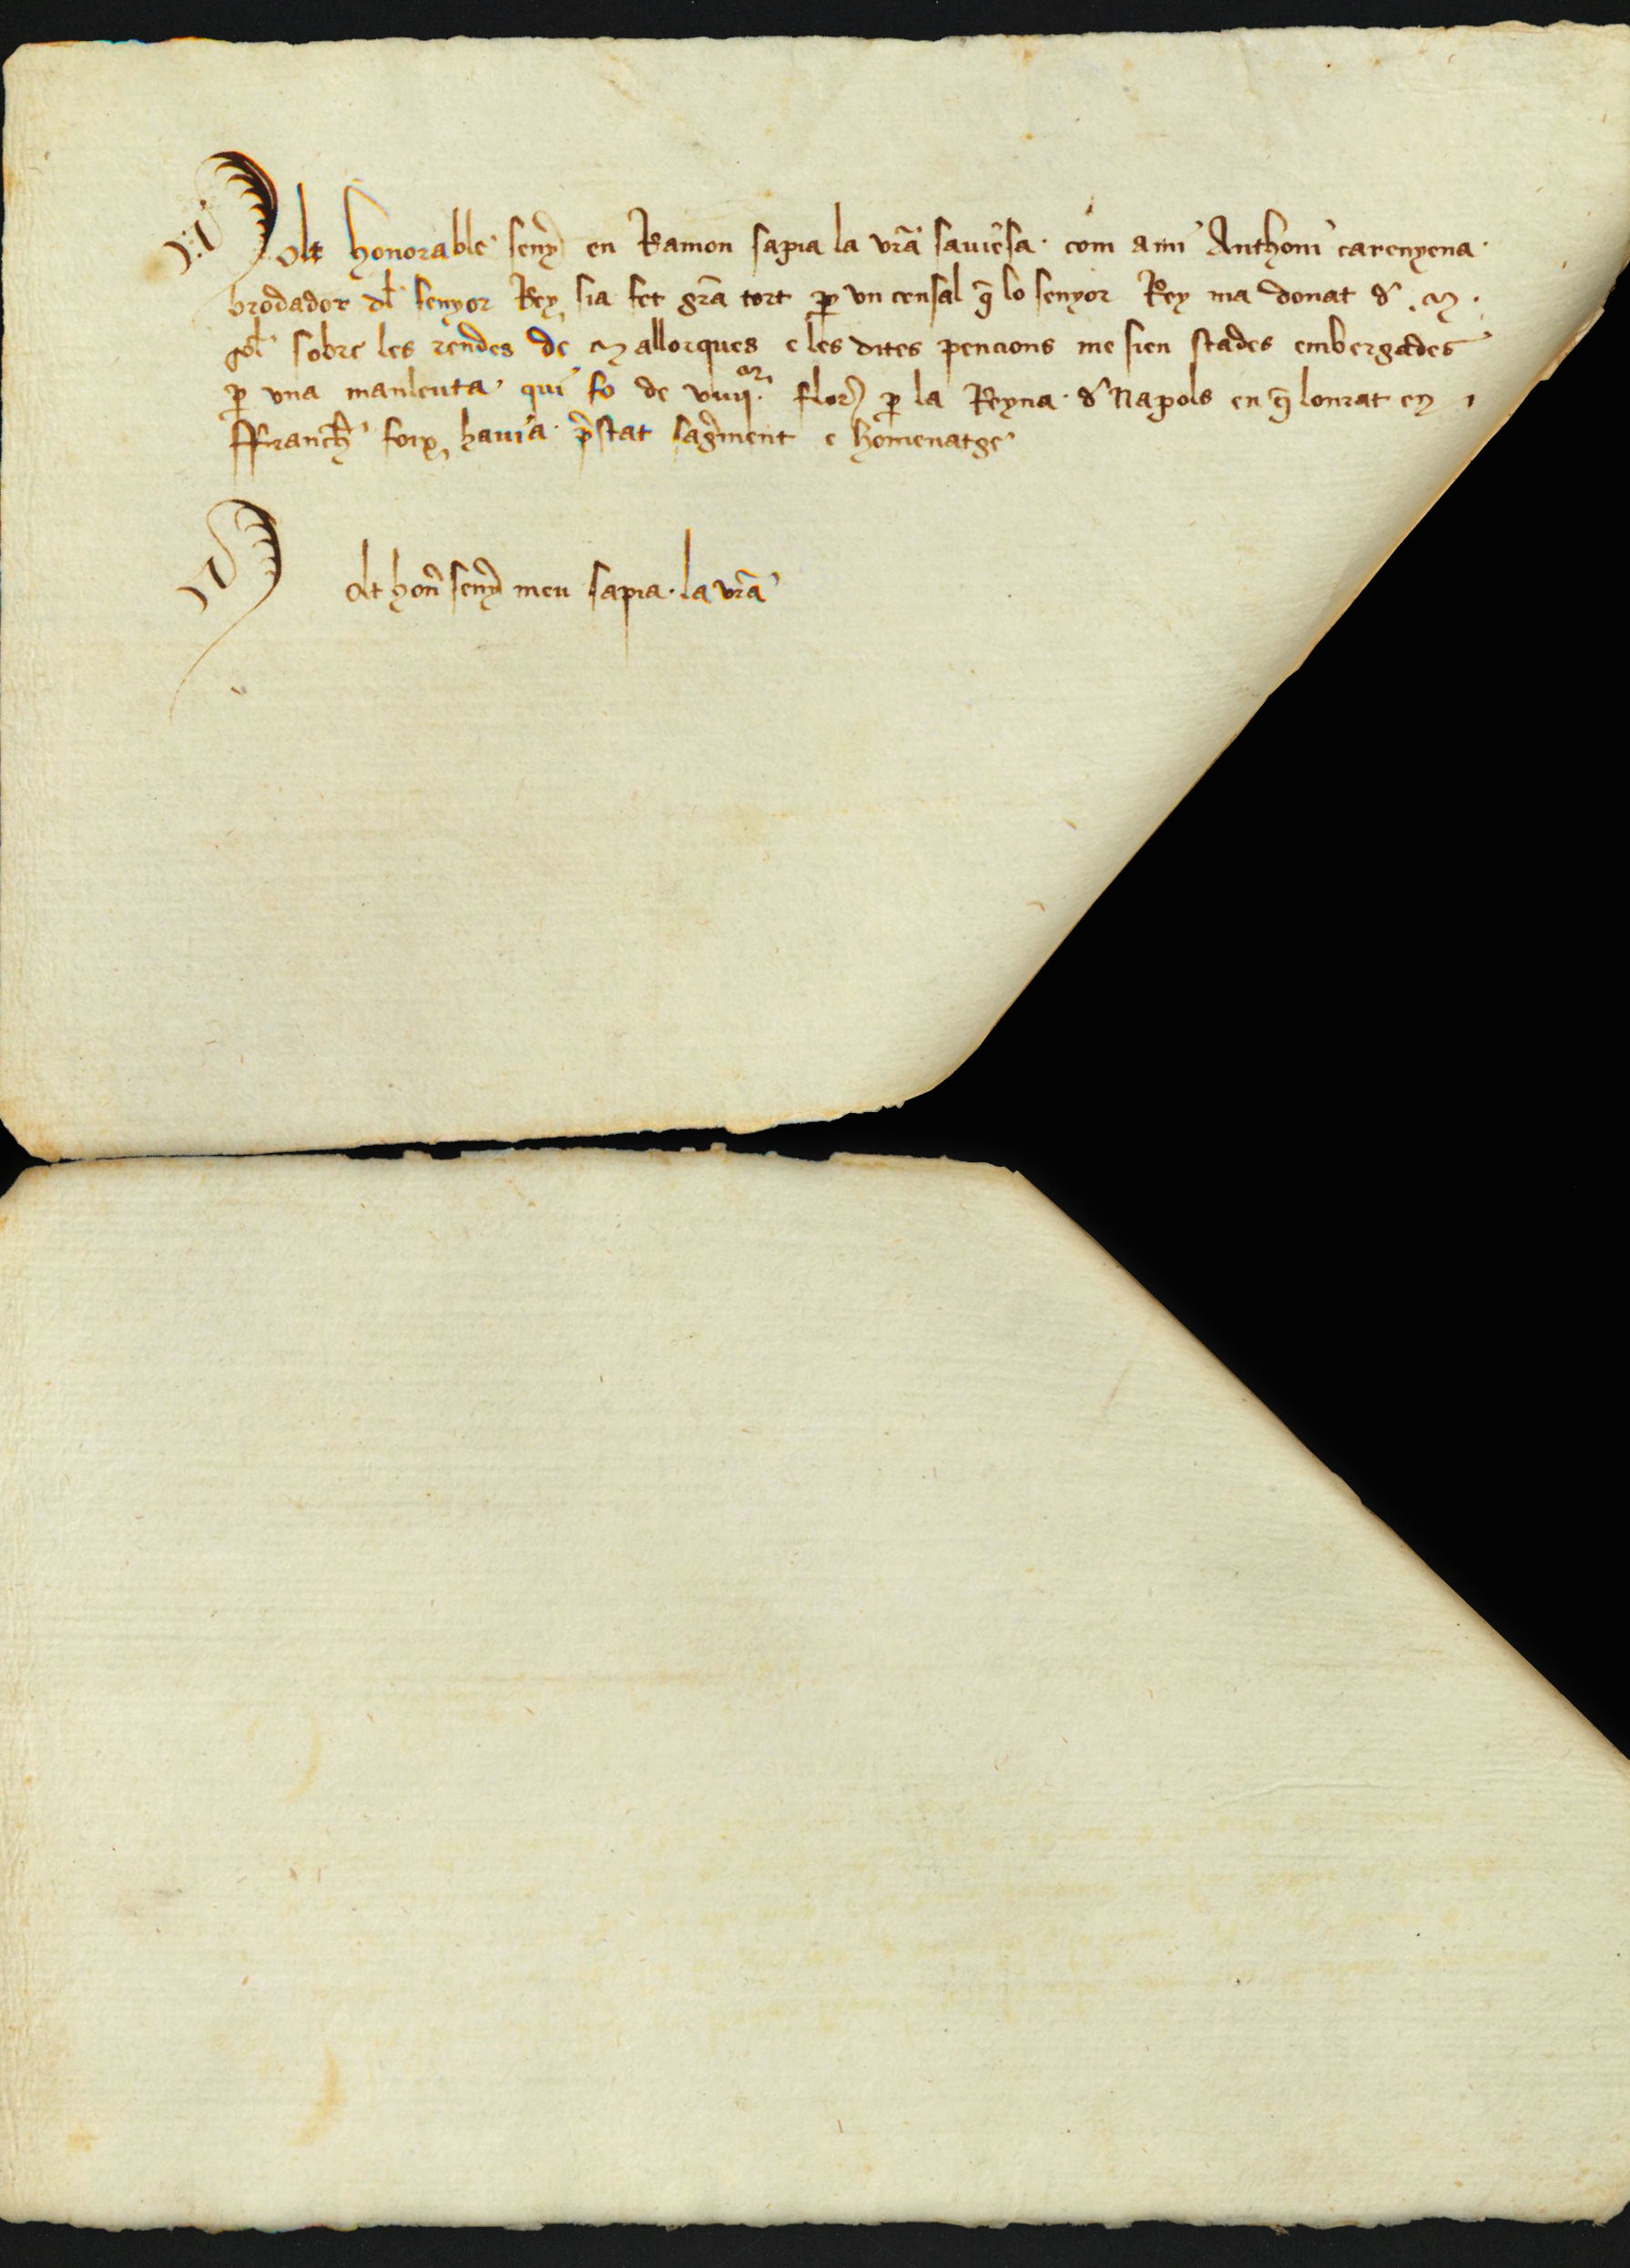 Molt honorable seny en Ramon sapia la vr̃a saviesa · com a mi Anthoni carenyena ·
brodador dl senyor Rey sia fet grã tort ꝑ un censal q̃ lo senyor Rey ma donat d · M ·
sol sobre les rendes de Mallorques e les dites pencions me sien stades embergades
ꝑ una manleuta qui fo de viiij · M flor ꝑ la Reyna · d Napols en q̃ lonrat en
ffranch foix havia · p̃stat sagr̃ment e homenatge
Molt hon̄ seny meu sapia · la vr̃a